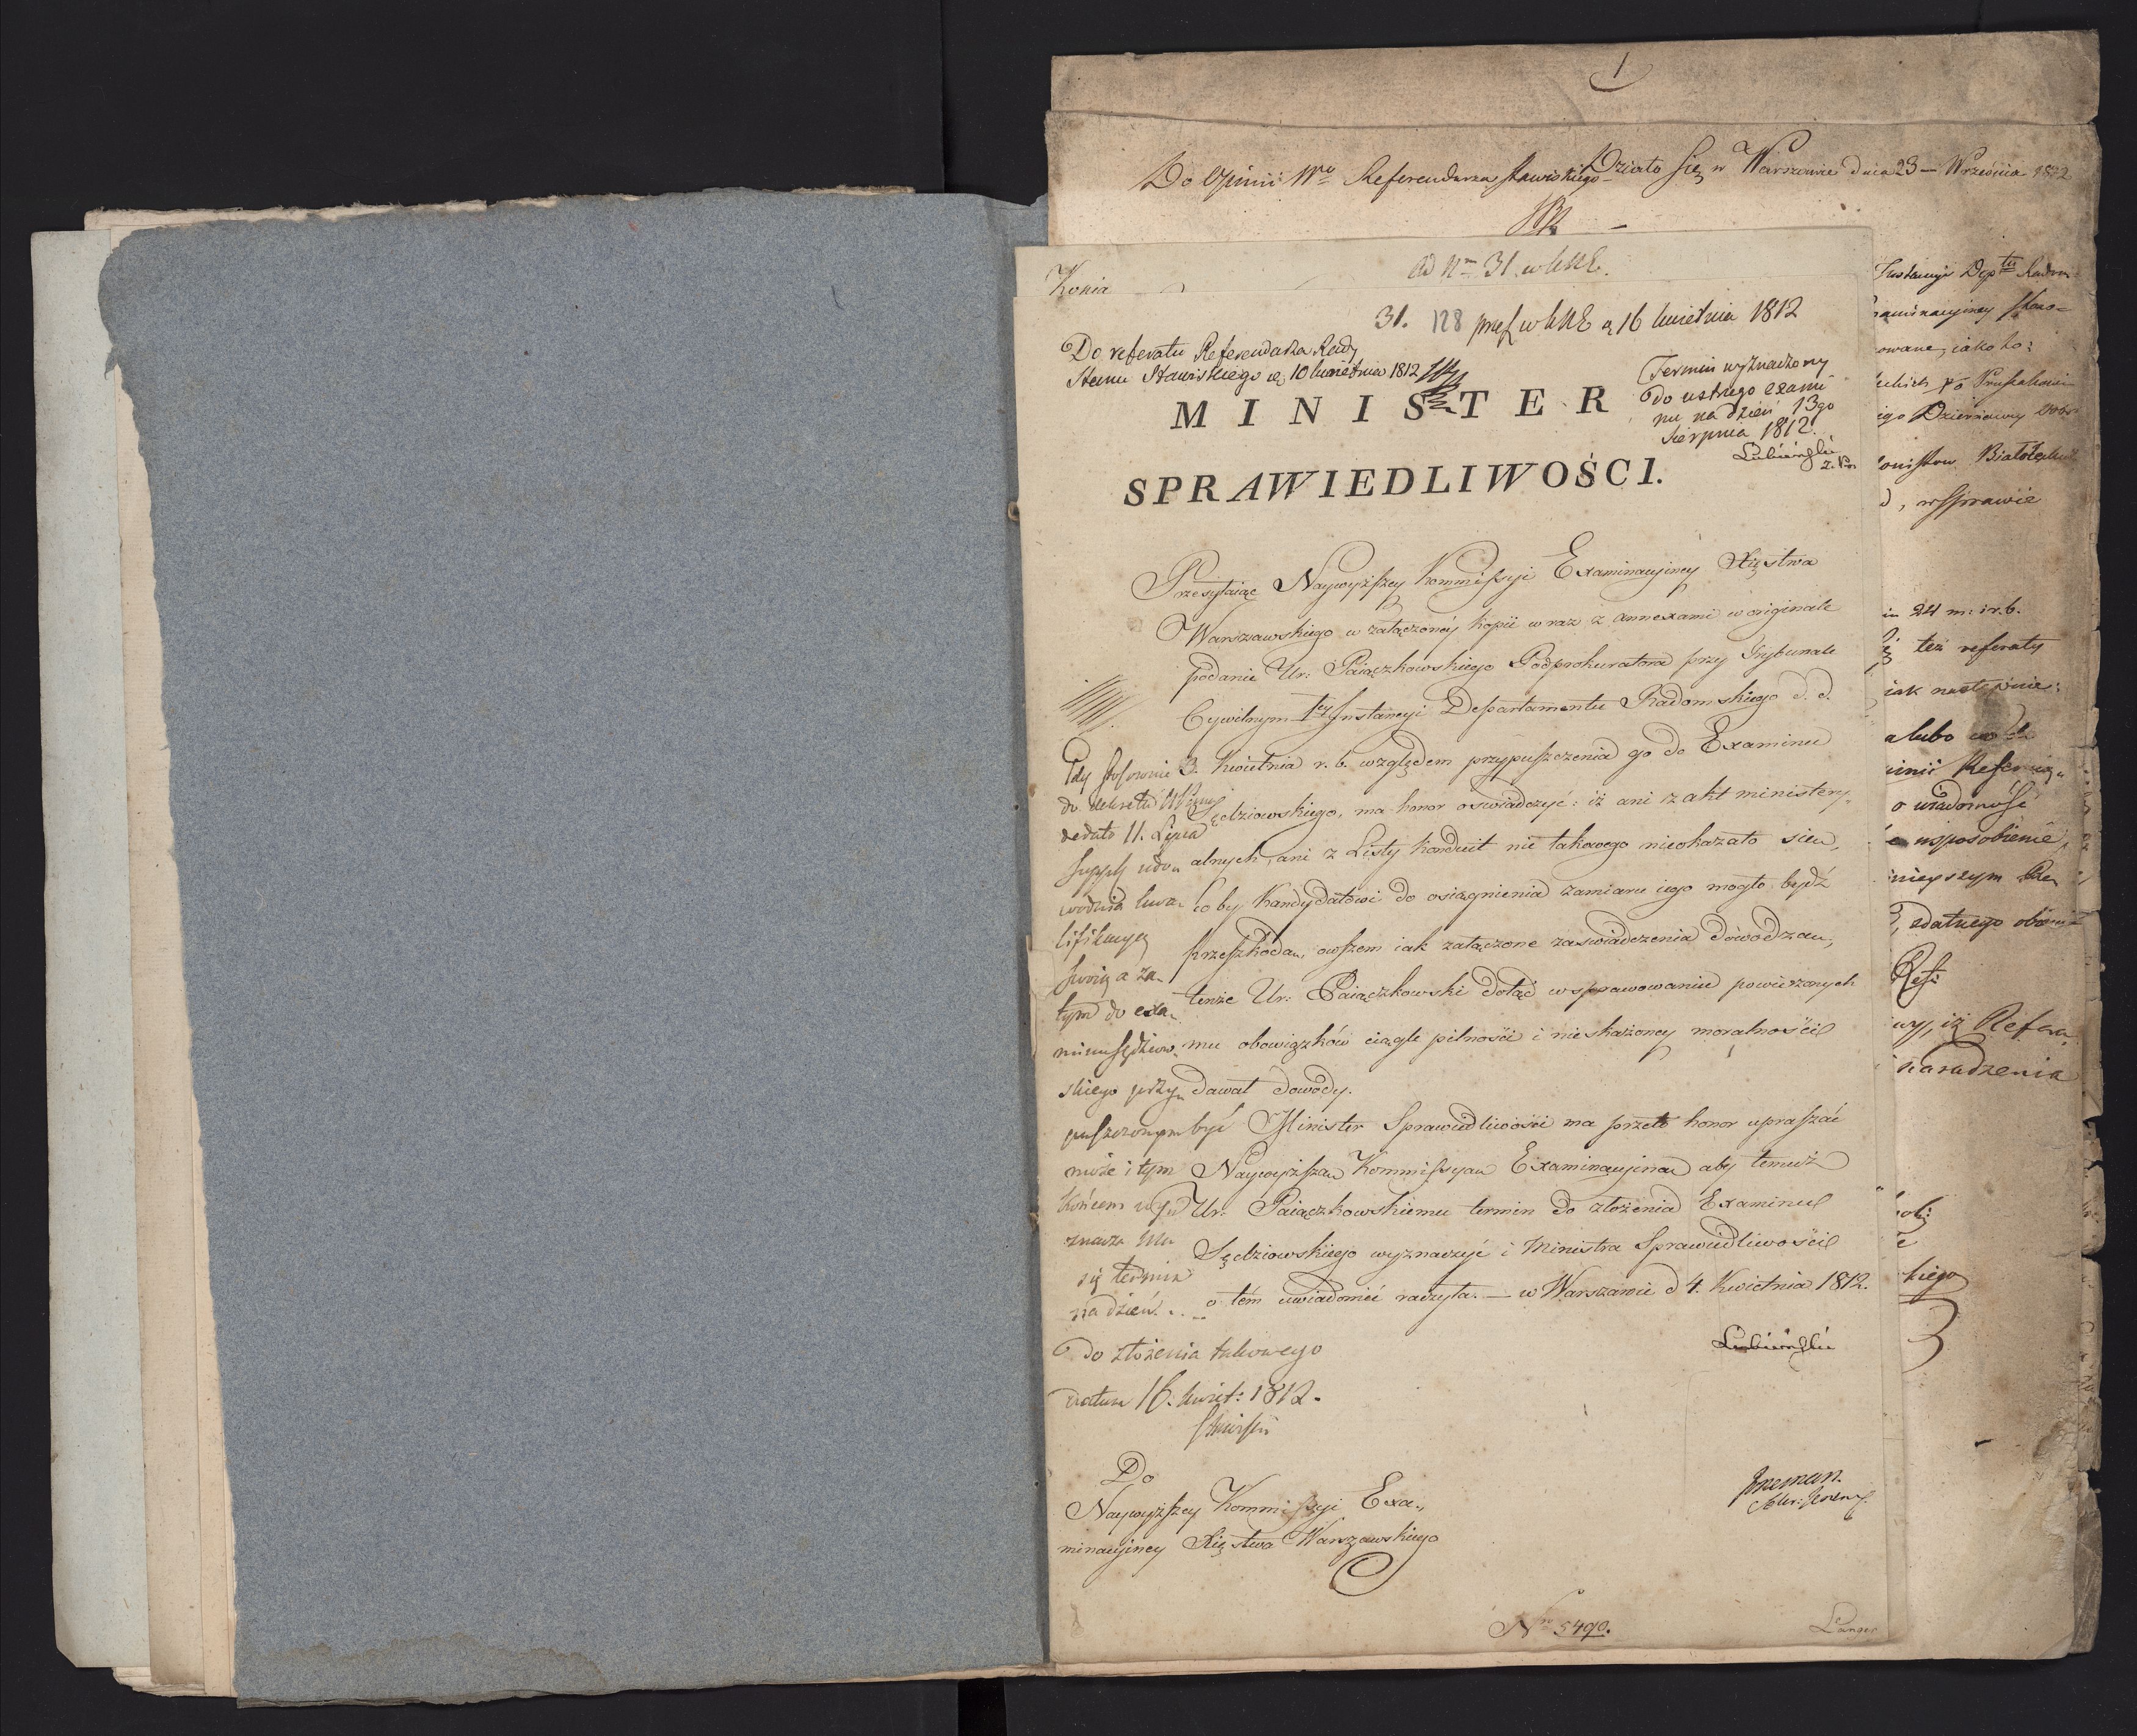 1
Do Opinii Wo Referendarza Stawiskiego
Działo się w Warszawie dnia 23 Września 1812
Kopia
ad Nm 31. w KNE.
31. 128 pręs w KNE d 16 kwietnia 1812
Do referatu Referendarza Rady
Stanu Stawiskiego d. 10 kwietnia 1812
Termin wyznaczony
do ustnego exami
nu na dzień 13go
Sierpnia 1812.
Lubieński
MINISTER
SPRAWIEDLIWOŚCI.
Przesyłaiąc Naywyższey Kommissyi Examinacyiney Xięstwa
Warszawskiego w załączoney kopii wraz z annexami w originale
podanie Ur: Paiączkowskiego Podprokuratora przy Trybunale
Cywilnym 1ey Instancyi Departamentu Radomskiego d. d.
3. Kwietnia r. b. względem przypuszczenia go do Examinu
Sędziowskiego, ma honor oswiadczyć: iż ani z akt ministery-
alnych, ani z Listy Konduit nic takowego nieokazało sie,
coby Kandydatowi do osiągnienia zamiaru iego mogło bydź
przeszkodą, owszem iak załączone zaswiadczenia dowodzą,
tenże Ur: Paiączkowski dotąd w sprawowaniu powierzonych
mu obowiązków ciągłe pilności i nieskażoney moralności
dawał dowody.
Minister Sprawiedliwości ma przeto honor upraszać
Naywyższą Kommissyą Examinacyiną aby temuż
Ur: Paiączkowskiemu termin do złożenia Examinu
Sędziowskiego wyznaczyć i Ministra Sprawiedliwości
o tém uwiadomić raczyła. — w Warszawie d 4. Kwietnia 1812.
Lubieński
Gdy stosownie
do dekretu
de dato 11. Lipca
udo-
wodnia kwa-
lifikacyą
swoią a za-
tym do exa-
minu sędziow-
skiego przy-
puszczonym być
może i tym
końcem wy-
znacza mu
się termin
na dzień . . .
do złożenia takowego
datum 16. kwiet: 1812.
Stawiski
Do
Naywyższey Kommissyi Exa-
minacyiney Xięstwa Warszawskiego
No 5490.
Langer
Instancyi Dep-tu Radom-
owane, iako to:
w sprawie
też referaty
iak następuie:
alubo
o wiadomość
usposobienie,
Ref:
iż Refera-
naradzenia
kiego